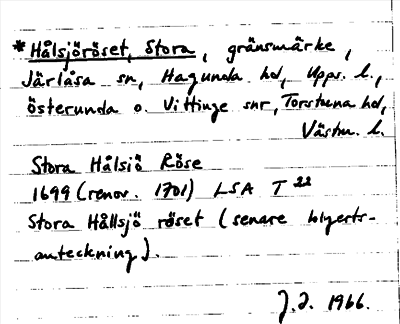 *Hålsjöröset, Stora, gränsmärke,
Järlåsa sn, Hagunda hd, Upps. l.,
Österunda o. Vittinge snr, Torstuna hd,
Västm. l.
Stora Hålsiö Röse
1699 (renov. 1701) LSA T 22
Stora Hållsjö röset (senare blyerts-
anteckning).
J.I. 1966.